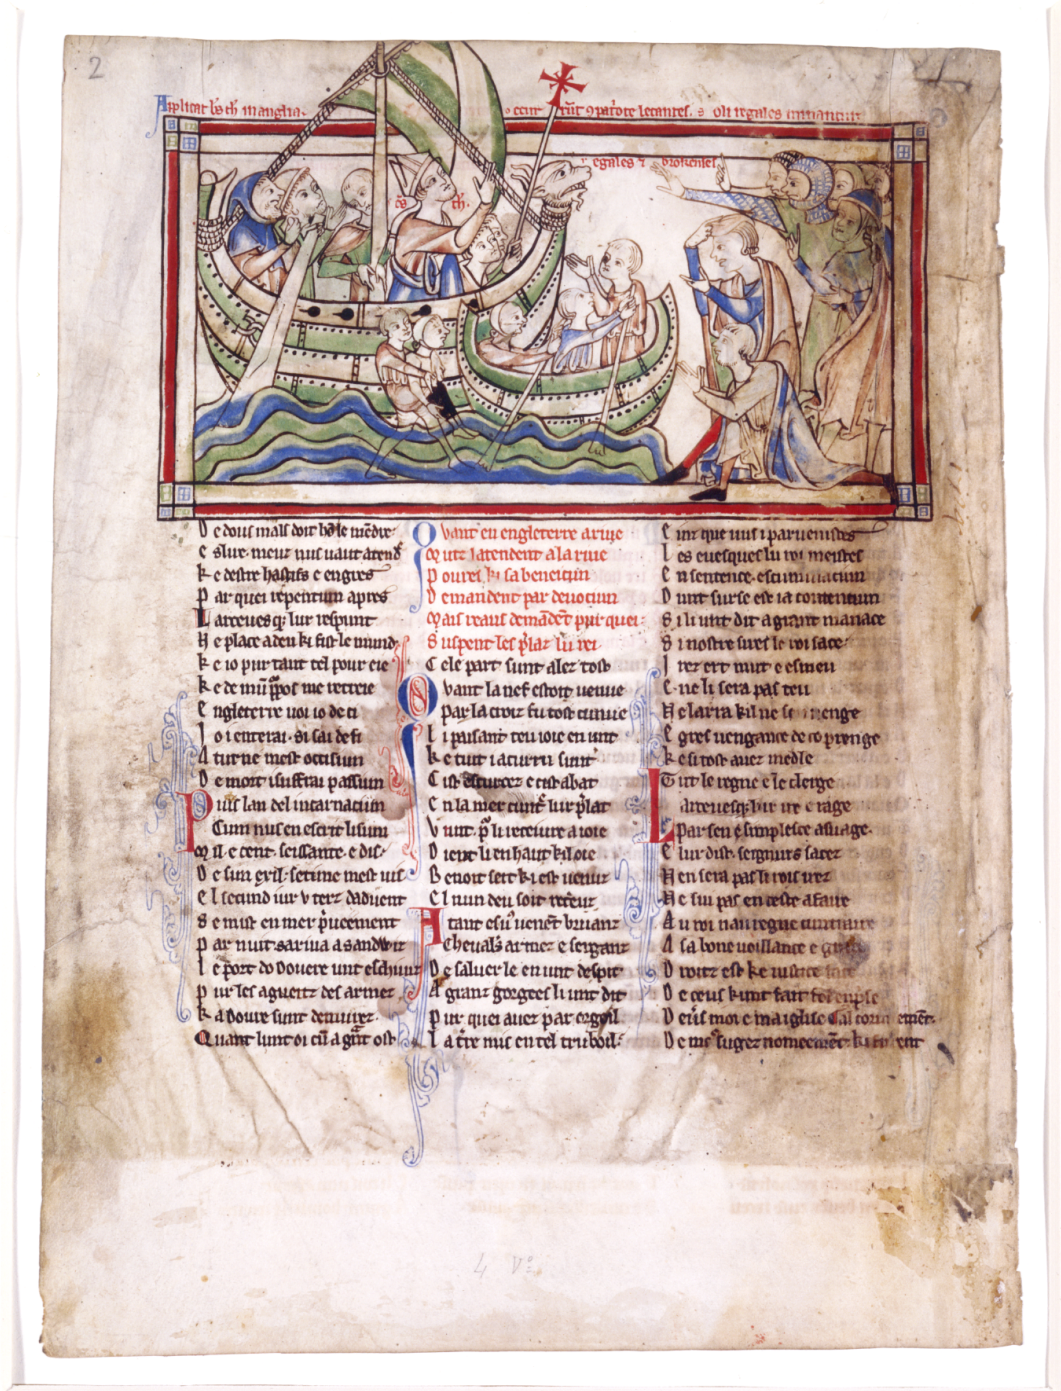 2
Applicat bs th in anglia.
occurrunt
regales
regales & brokenses
bs th.
De dous mals doit hom le mendre
Eslire. meuz nus vaut atendre
Ke destre hastifs e engres
Par quei repentum apres
Larceuesqe lur respunt
Ne place a deu ki fist le mund
Ke io pur tant tel pour eie
Ke de mun purpos me retreie
Engleterre voi io de ci
I oi enterai. si sai de fi
A turne mest occisiun
De mort i suffrai passiun
Puis lan del incarnaciun
Cum nus en escrit lisum
Mil. e cent. seissante. e dis.
De sun exil. setime mest vis
El secund iur v terz daduent
Se mist en mer priueement
Par nuit sariua a sandwiz
Le port do Douere unt eschiuuz
Pur les agueitz des armez
Ka Dovre sunt denuirez.
Quant lunt oi cum a grant ost
Quant en engleterre ariue
Mutz latendent a la riue
Poures ki sa beneicun
Demandent par deuociun
Mais reaus demandent pur quei
Suspent les prelaz lu rei
Cele part sunt alez tost
Quant la nef estoit venue
Par la croiz fu tost cunue
Li paisant teu ioie en unt
Ke tuit i acurru sunt
Cist descurcez e cist abat
En la mer cuntre lur prelat
Vunt. pur li receiure a ioie
Dient li en haut kil oie
Benoit seit ki est venuz
El nun deu soit receuz
Atant es vus venent bruianz
Cheualers armez e serganz
De saluer le en unt despit
A granz gorgees li unt dit
Pur quei auez par orgoil
La terre mis en tel truboil
Einz que vus i paruenistes
Les euesques lu roi meistes
En sentence. escuminiaciun
Dunt surse est ia contenciun
Si li unt dit a grant manace
Si nostre sires le roi sace
Irez ert mut e esmeu
E. ne li sera pas teu
Ne larra kil ne se venge
E gref uengance de co prenge
Ke si tost auez medle
Tut le regne e le clerge
Larceuesque lur ire e rage
Par sen e simplesce asuage.
E lur dist. seignurs sacez
Nen sera pas li rois irez
Ne sui pas en ceste afaire
A u roi nau regne cuntraire
A sa bone voillance e gre
Droitz est ke iustice face
De ceus kunt fait tel
De deus moi e ma iglise
De mes
4 vº